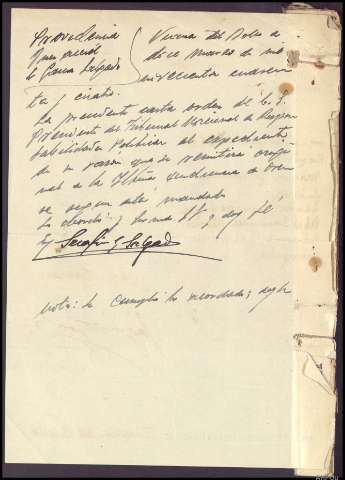 Providencia
Juez
Sr. Garcia Salgado
Viana del Bollo a
doce Marzo de mil
novecientos cuaren
ta y cuatro.
La precedente carta orden de
Presidente del Tribunal Nacional de Respon
sabilidades Politicas al expediente
de su razon que se remitirá origi
nal a la Ilma Audiencia de Oren
se según está mandado
Lo acordó y firma SSª y doy fé
Serafín G. Salgado
nota: Se cumplió lo acordado; doy fe